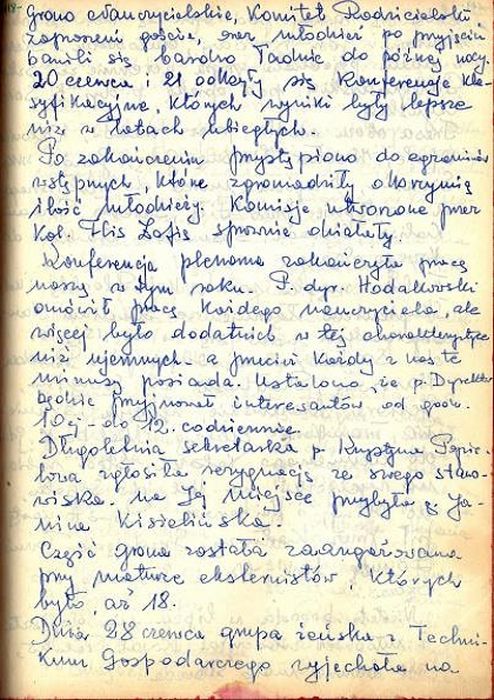 Grono nauczycielskie, Komitet Rodzicielski
zaproszeni goście, oraz młodzież po przyjęciu
bawili się bardzo ładnie do późnej nocy.
20 czerwca i 21 odbyły się Konferencje kla-
syfikacyjne, których wyniki były lepsze
niż w latach ubiegłych.
Po zakończeniu przystąpiono do egzaminów
wstępnych, które zgromadziły olbrzymią
ilość młodzieży. Komisje utworzone przez
Kol. Flis Zofię sprawnie działały.
Konferencja plenarna zakończyła pracę
naszą w tym roku. P. dyr. Hodakowski
omówił pracę każdego nauczyciela, ale
więcej było dodatnich w tej charakterystyce
niż ujemnych - a przecież każdy z nas te
minusy posiada. Ustalono, że p. Dyrektor
będzie przyjmował interesantów od godz.
10ej - do 12. codziennie.
Długoletnia sekretarka p. Krystyna
zgłosiła rezygnację ze swego stano-
wiska. na Jej miejsce przybyła p. Ja-
nina Kisielińska.
Część grona została zaangażowana
przy maturze eksternistów, których
było, aż 18.
Dnia 28 czerwca grupa żeńska z Techni-
kum Gospodarczego wyjechała na